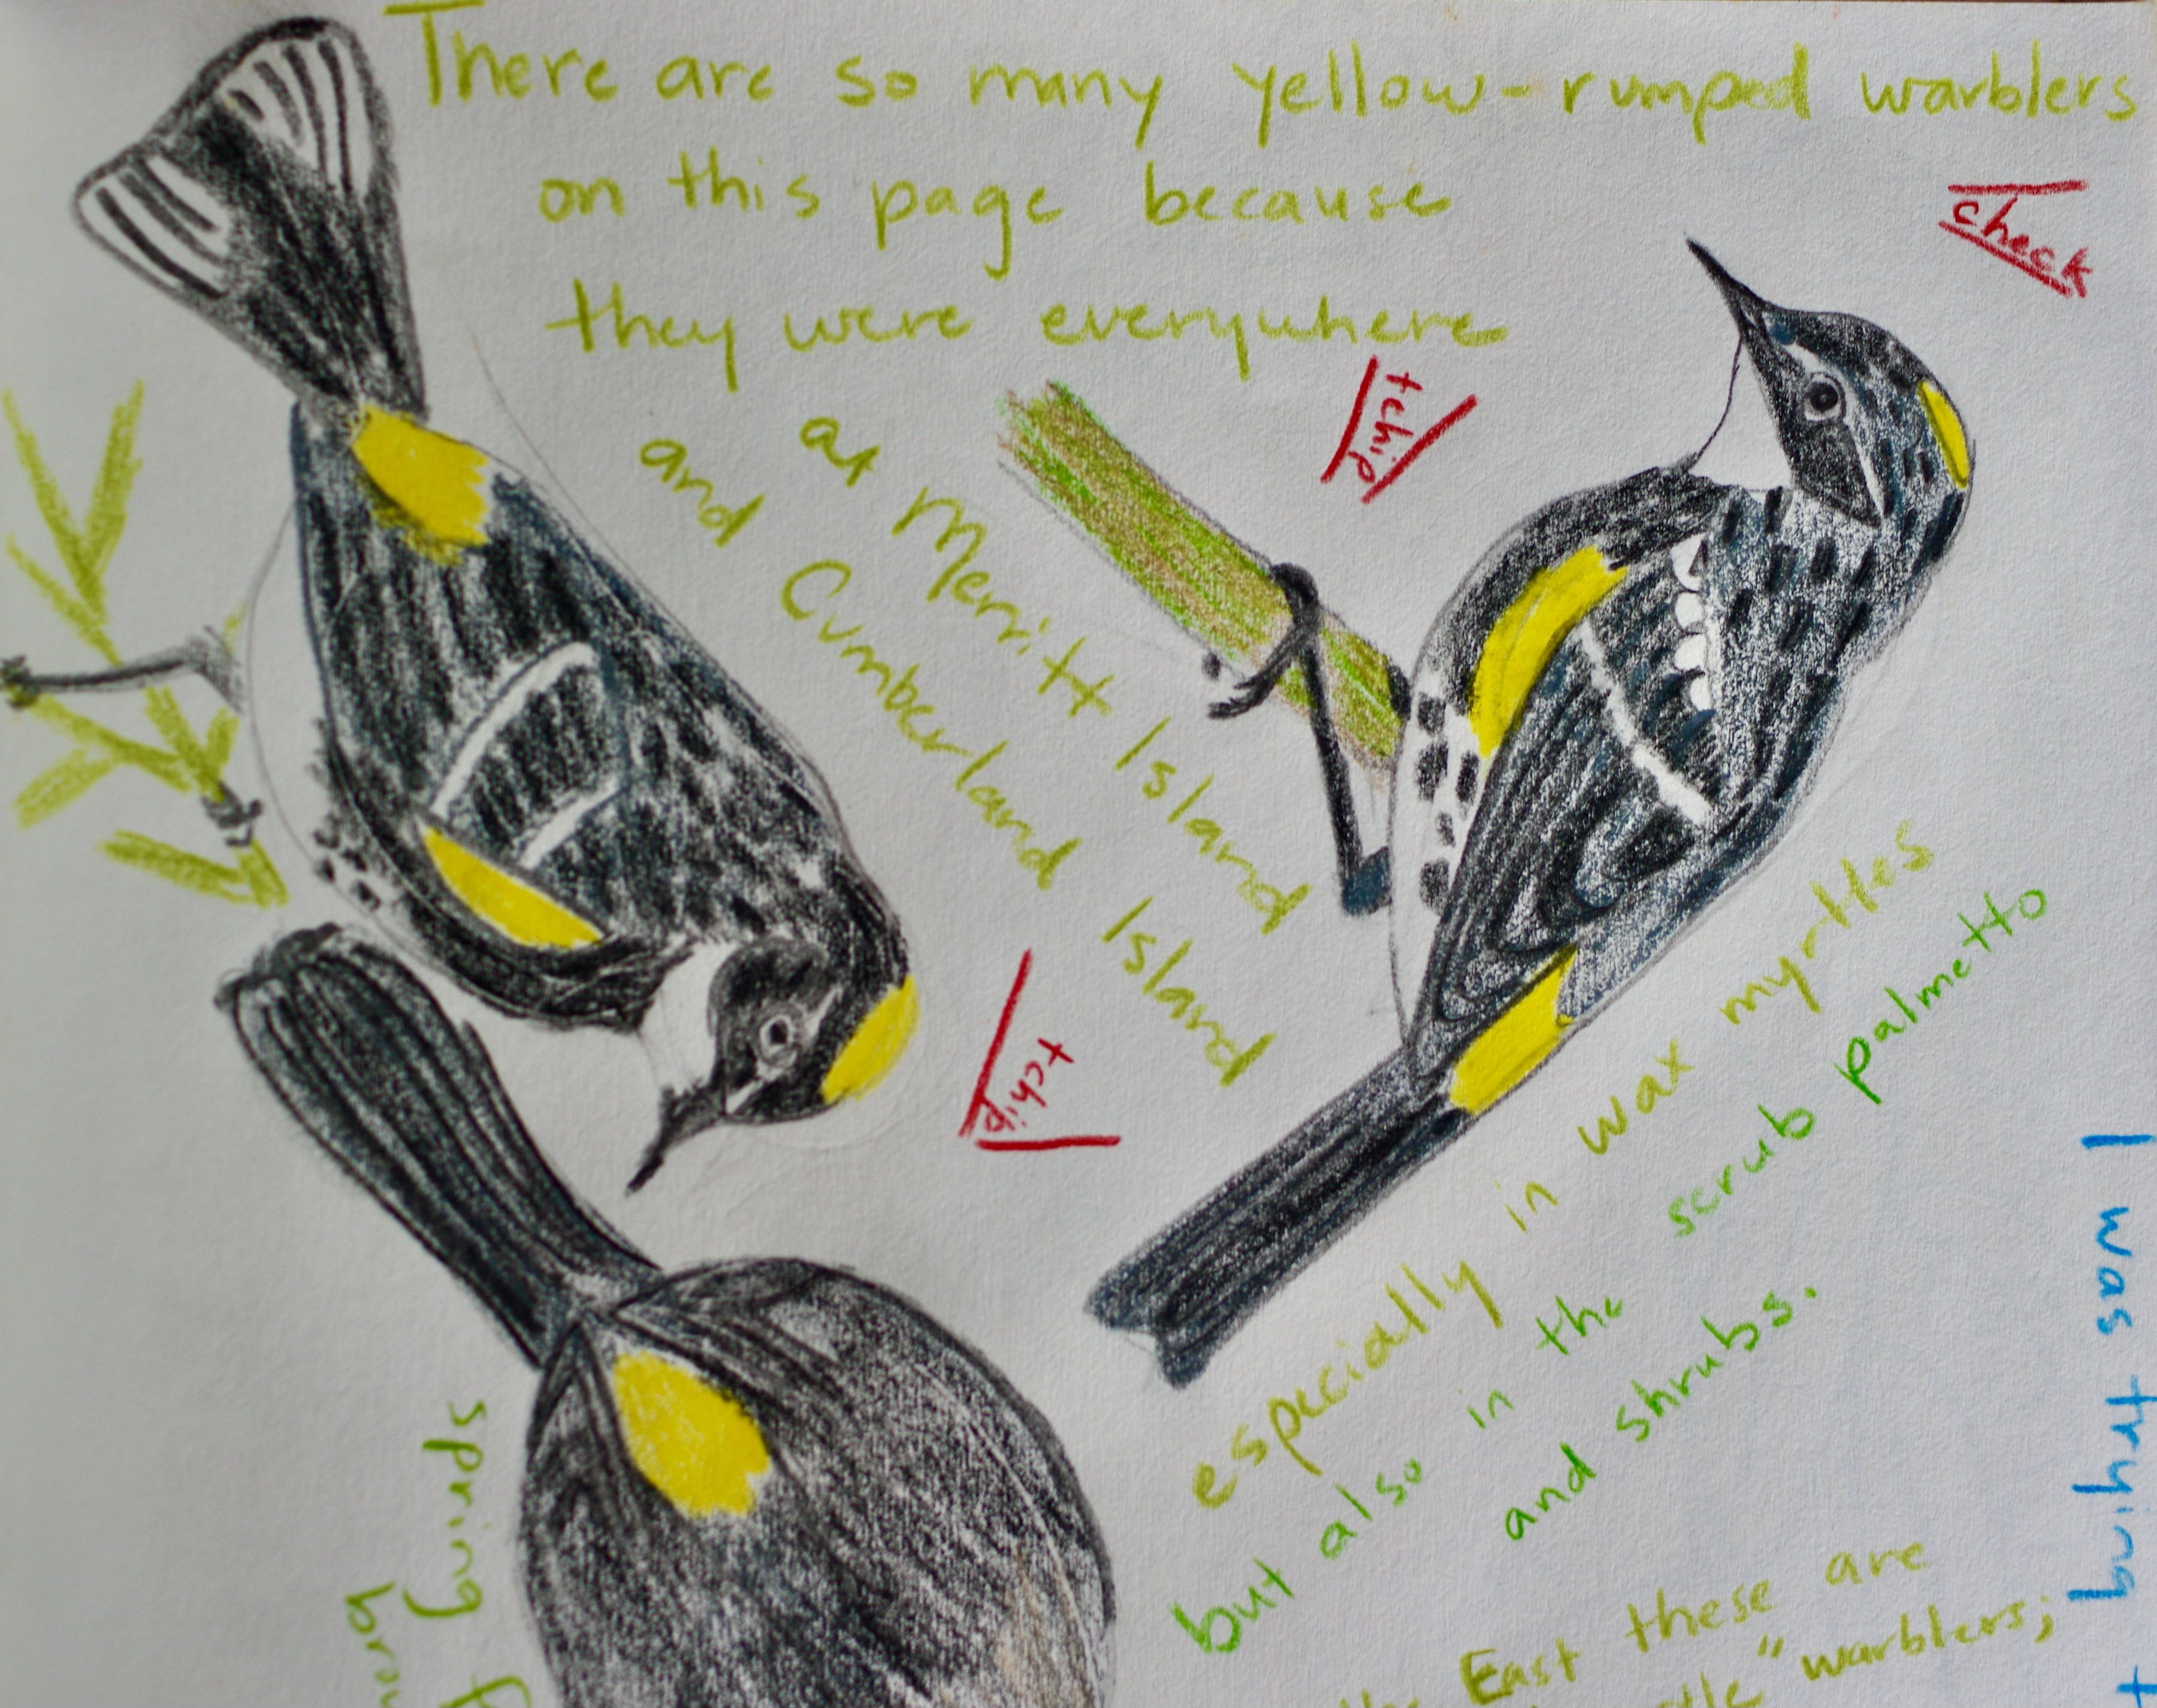 There are so many yellow-rumped warblers
on this page because
they were everywhere
at Merritt Island
and Cumberland Island
especially in wax myrtles
but also in the scrub palmetto
and shrubs.
East these are
" warblers;
check
tchip
tchip
I was trying
spring